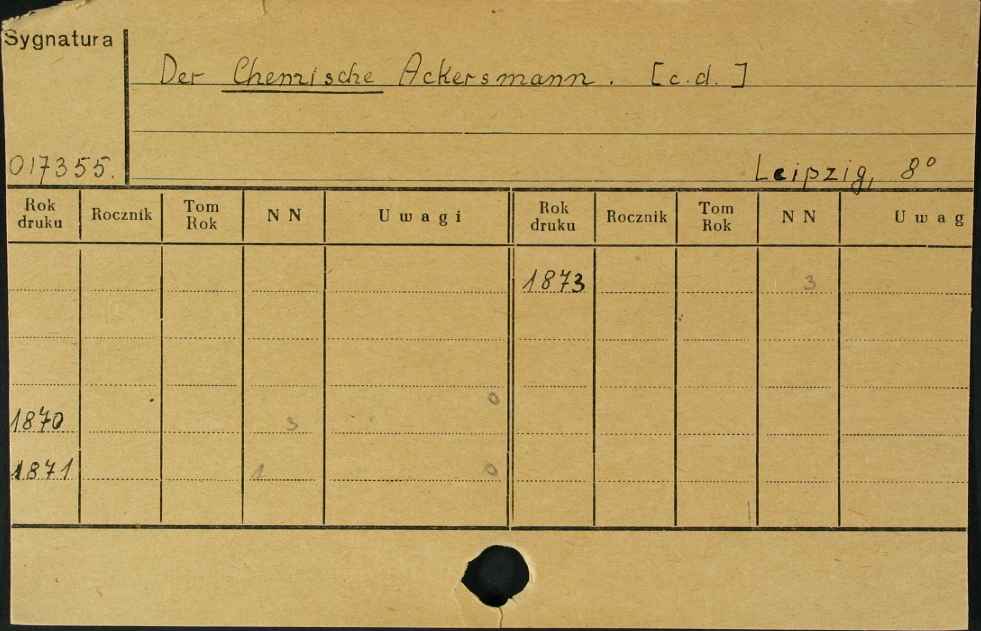 Sygnatura
Der Chemische Ackersmann. [c.d.]
017355.
Leipzig, 8°
Rok druku Rocznik Tom Rok NN Uwagi Rok druku Rocznik Tom Rok NN Uwag
1873 3
0
1870 3
1871 1 0